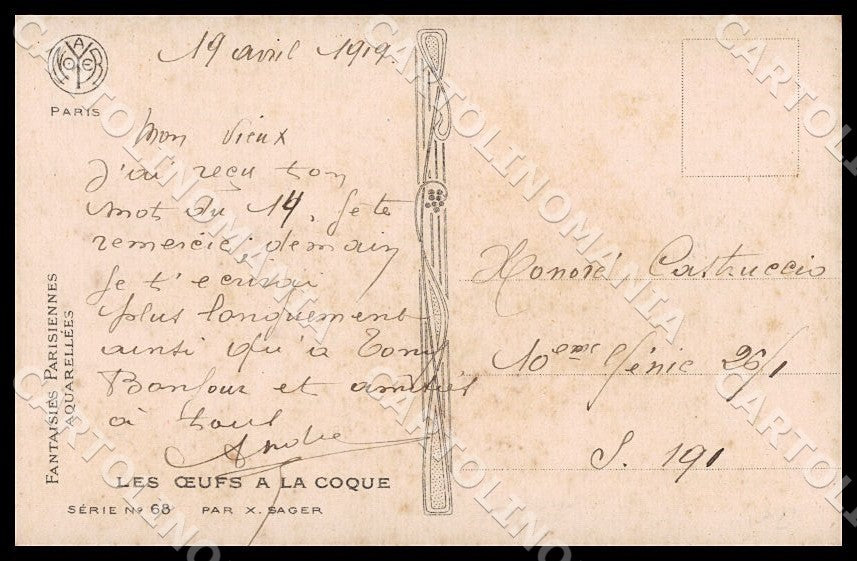 19 avril 1919.
PARIS
Mon vieux
J'ai reçu ton
mot du 14. Je te
remercie, demain
Je t'ecrirai
plus longuement
ainsi qu'à Tony
Bonjour et amitiés
à tous
Andre
FANTAISIES PARISIENNES
AQUARELLÉES
LES ŒUFS A LA COQUE
SÉRIE No 68 PAR X. SAGER
Honoré Castruccio
10eme Génie 26/1
S. 191
CARTOLINOMANIA